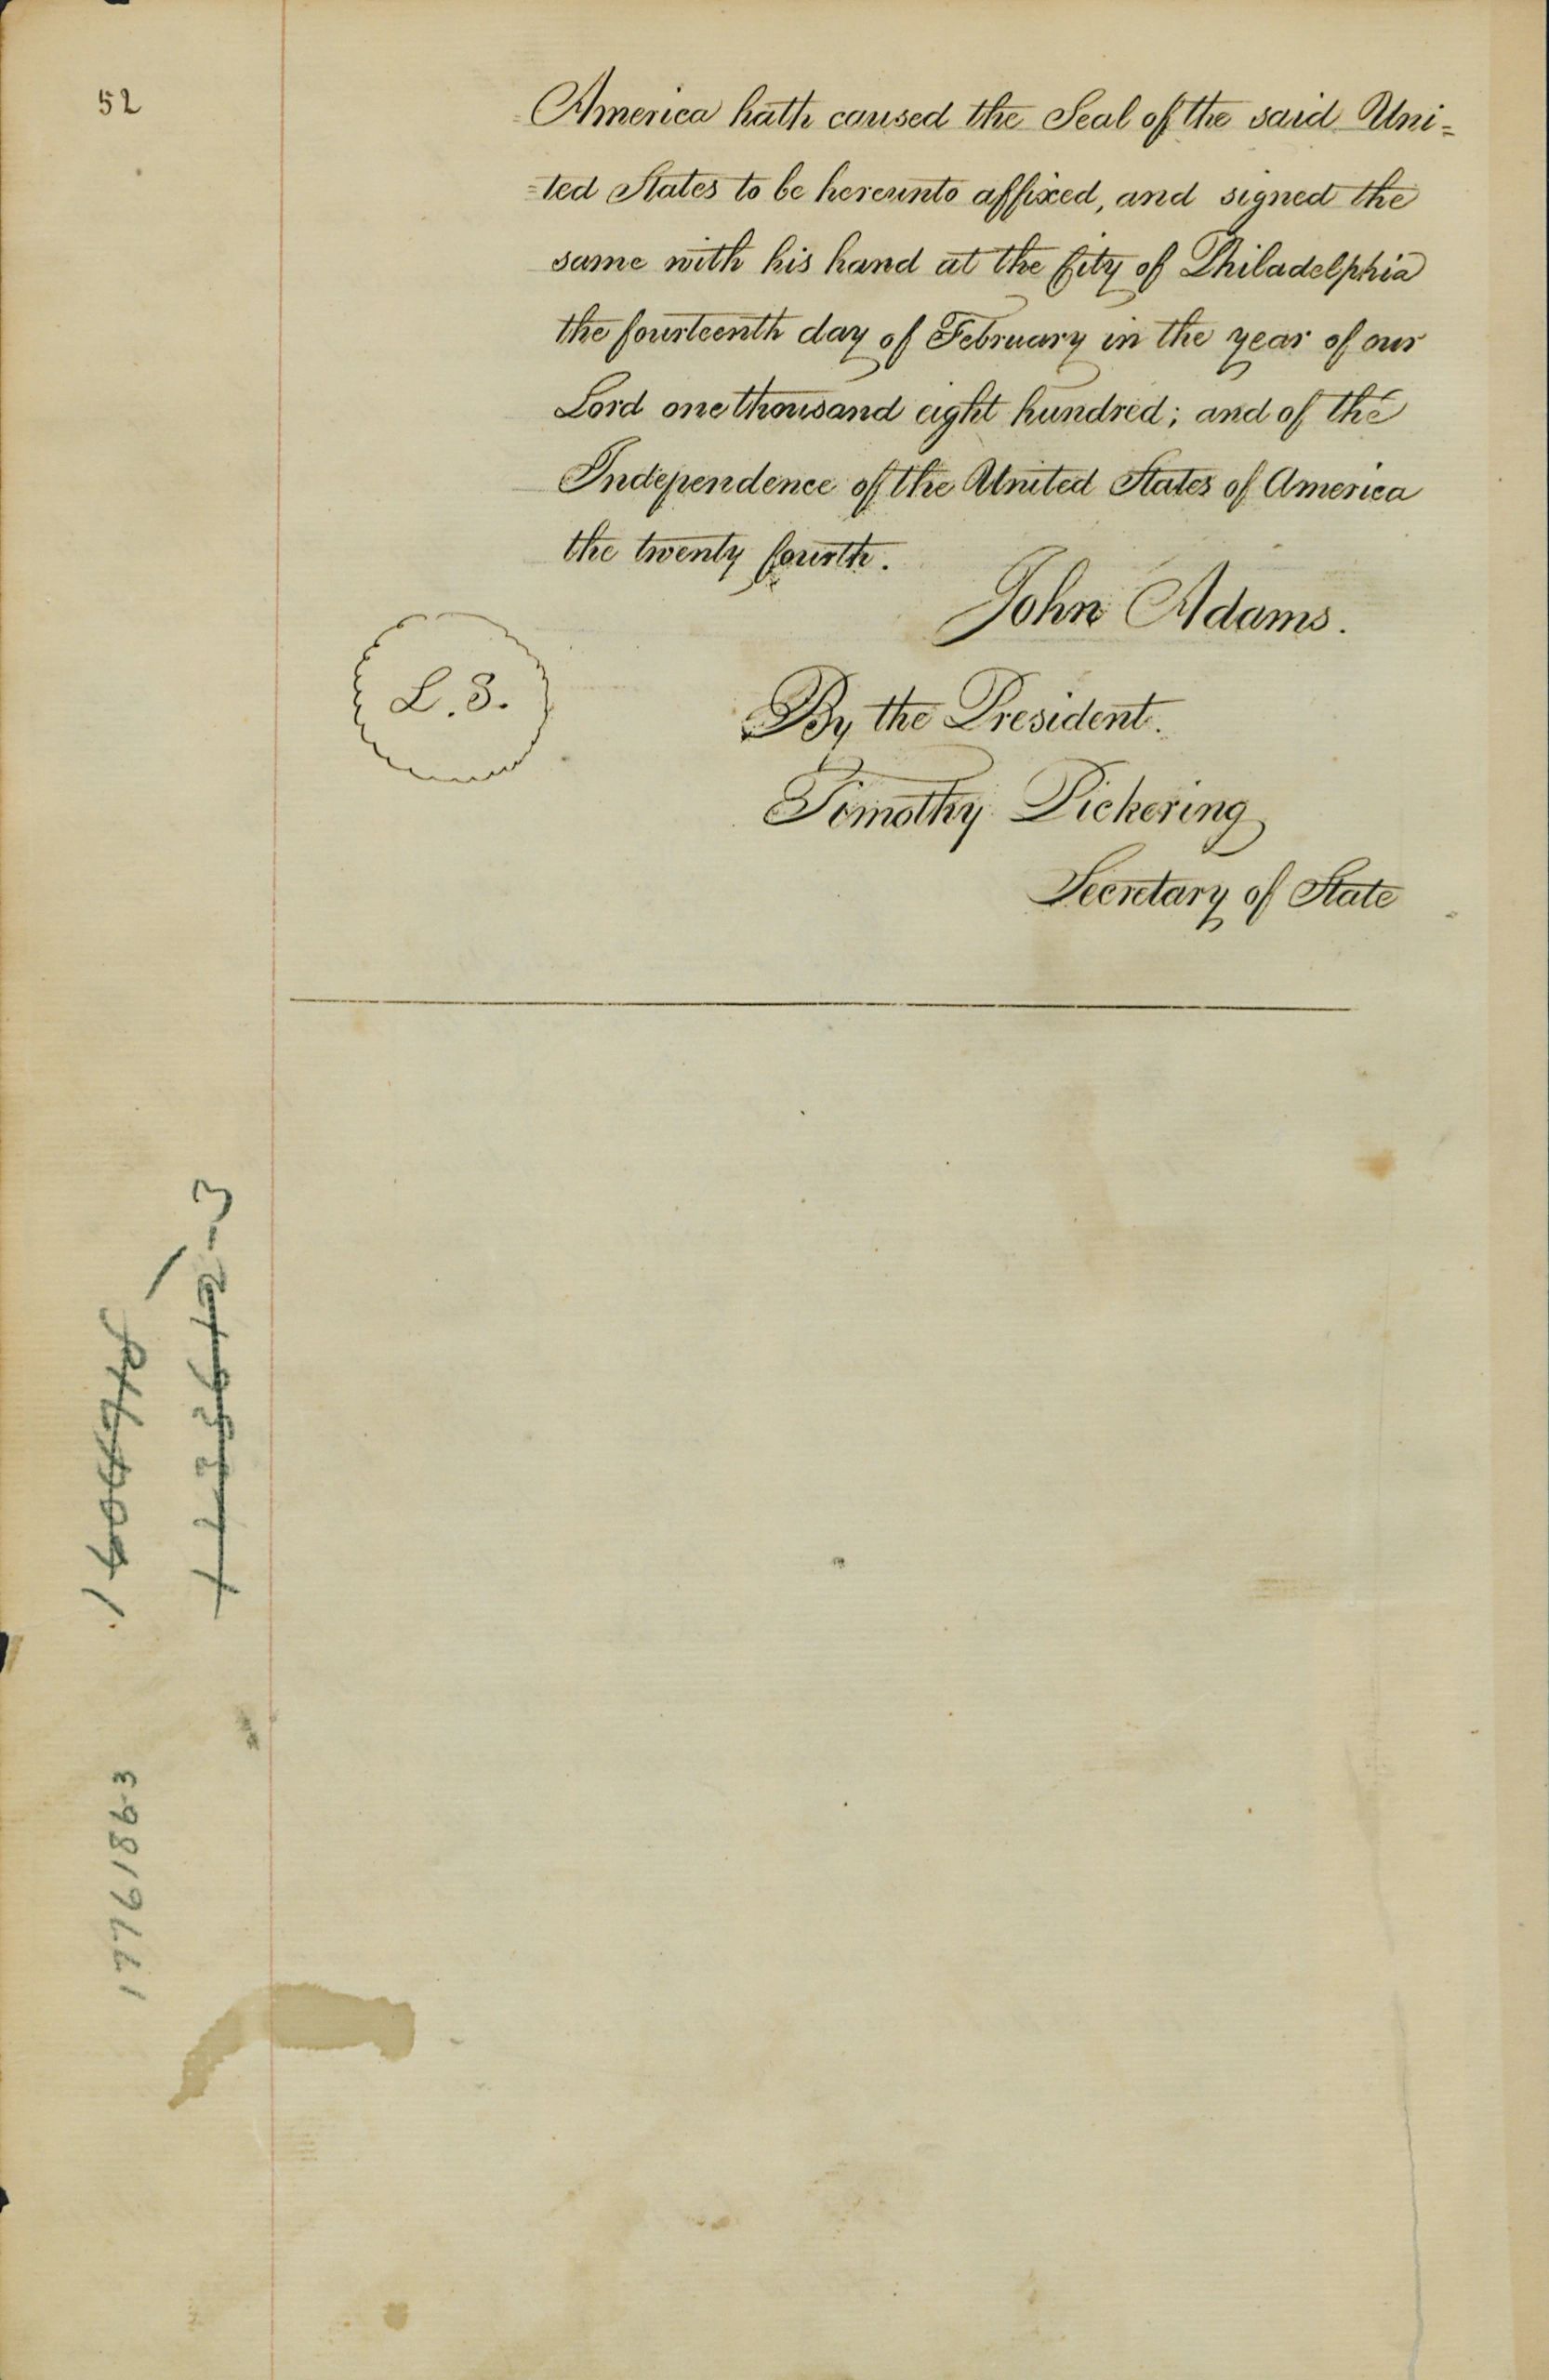 52
America hath caused the Seal of the said Uni=
=ted States to be hereunto affixed, and signed the
same with his hand at the City of Philadelphia
the fourteenth day of February in the year of our
Lord one thousand eight hundred; and of the
Independence of the United States of America
the twenty fourth.
John Adams.
L.S.
By the President.
Timothy Pickering
Secretary of State
17761863